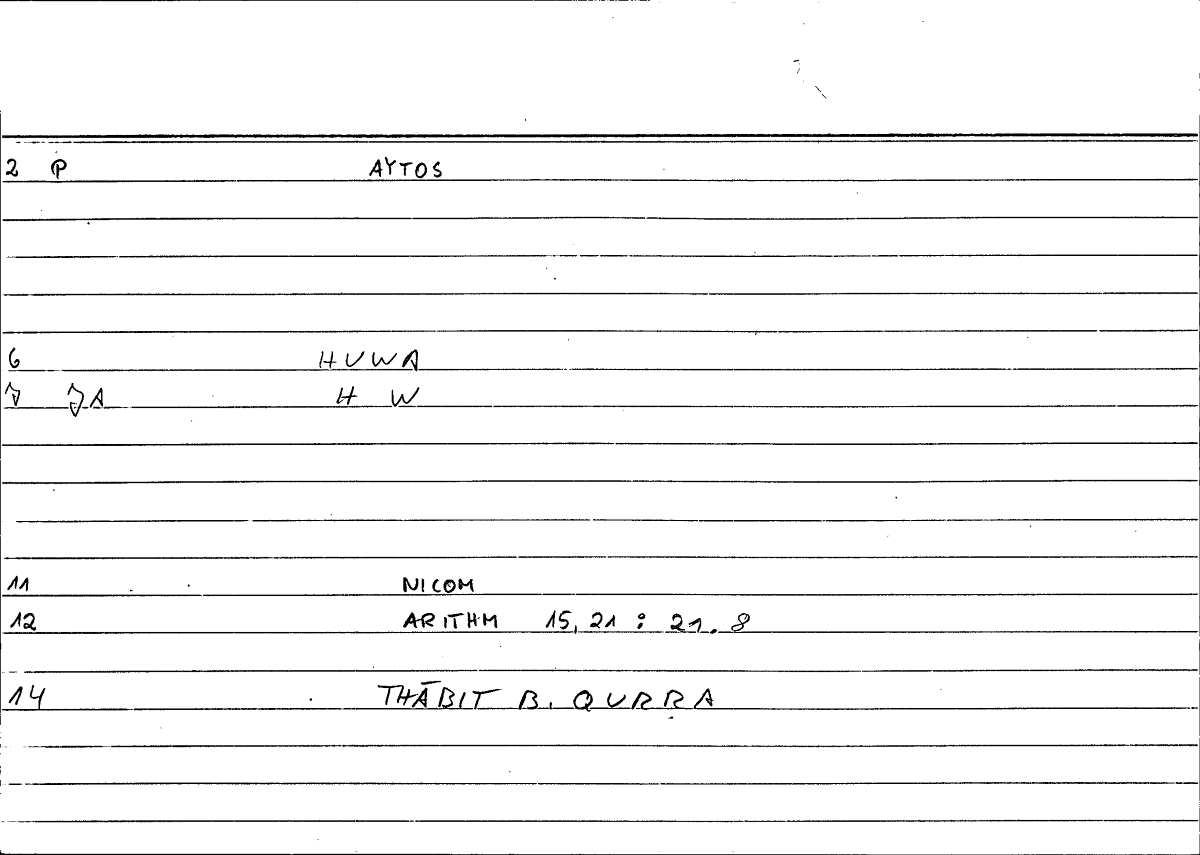 2 P AYTOS
6 HUWA
7 JA H W
11 NICOM
12 ARITHM 15, 21 : 21. 8
14 THĀBIT B. QURRA